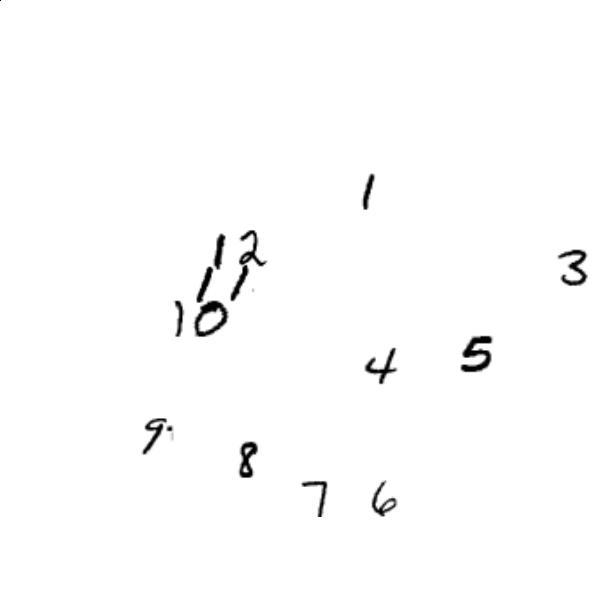 1
12
3
11
10
4 5
9
8
7 6